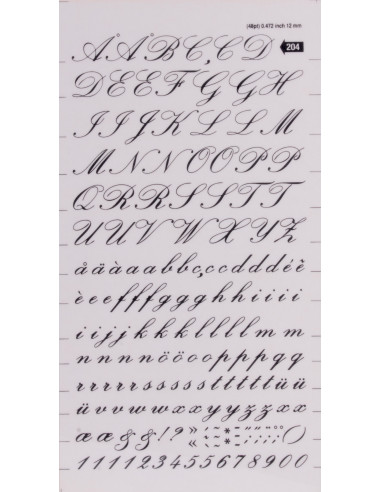 (48pt) 0.472 inch 12 mm
204
Å Å B C Ç C D
D E E F G G H
I I J K L L M
M N N O O P P
Q R R S S T T
U U V W X Y Z
å ä à a a b b c ç c d d d é ë
è e e f f f g g g h h i i i i
i i j j k k k l l l l l m m
n n n n n ö ö o o p p p q q
r r r r r s s s s s t t t t t ü ü
ü u u v v w w x x y y z z x x
æ æ & & ! ? »
1 1 1 1 2 3 4 5 5 6 7 8 9 0 0